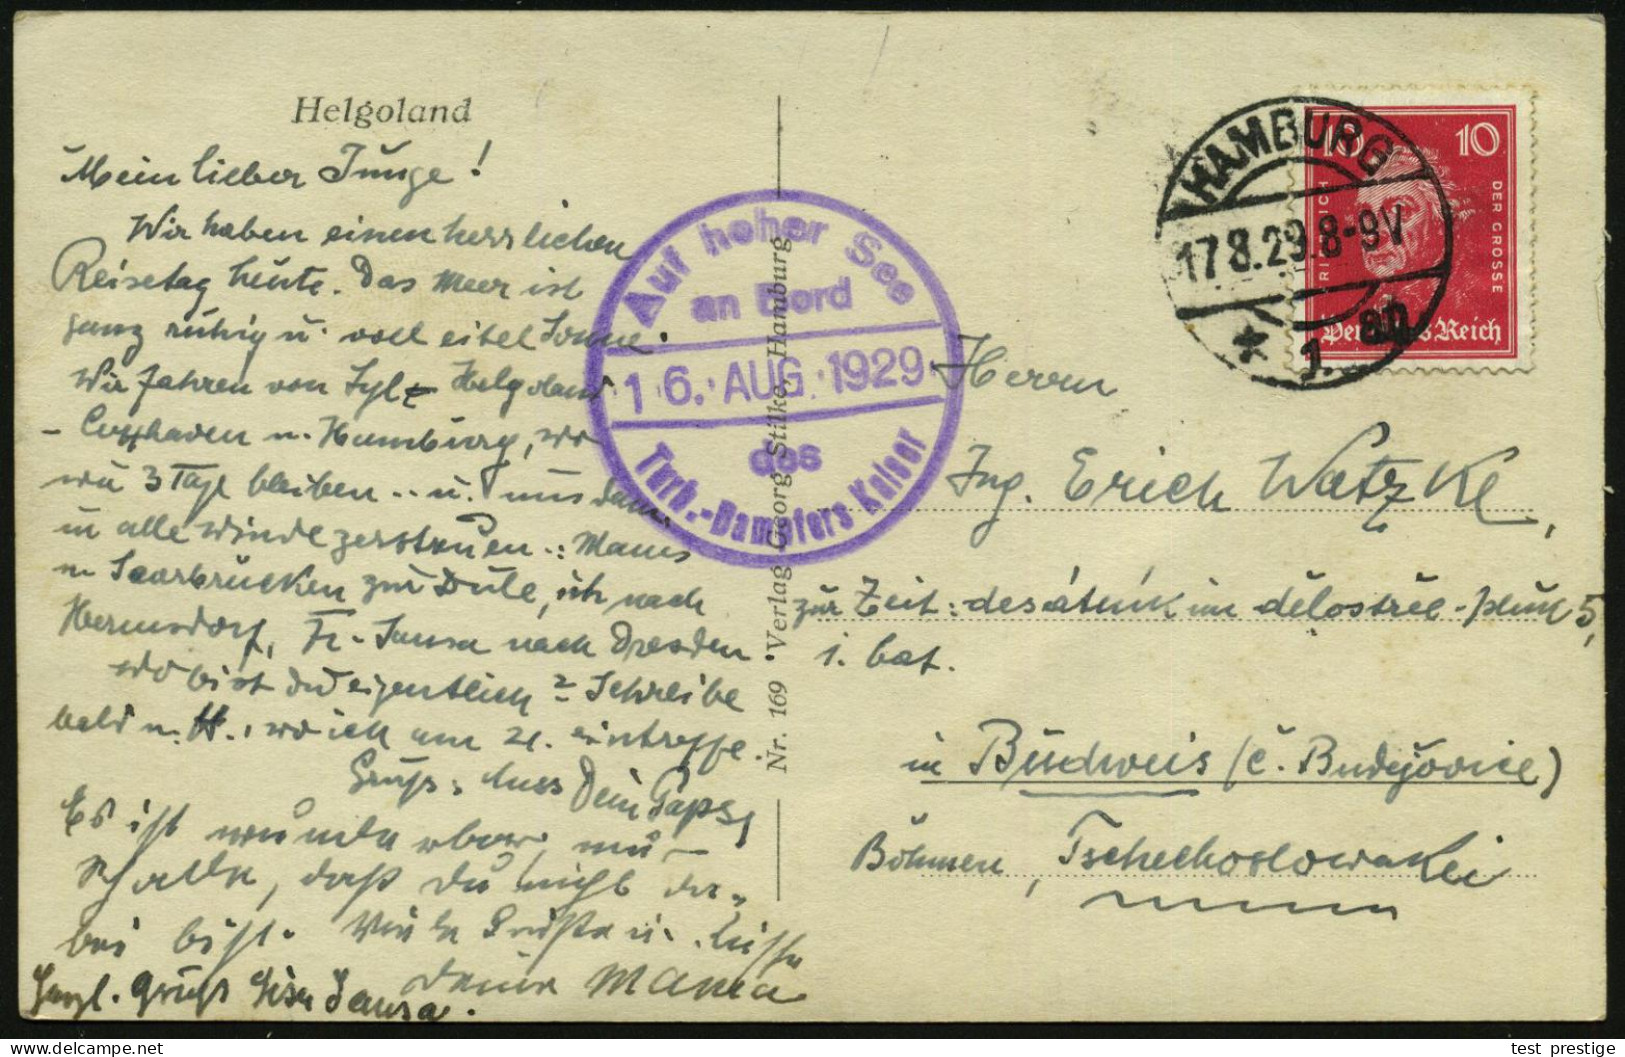 Helgoland
Mein lieber Junge!
Wir haben einen herrlichen
Reisetag heute. Das Meer ist
ganz ruhig u. voll eitel Sonne.
Wir fahren von Sylt - Helgoland
- Cuxhaven n. Hamburg, wo
wir 3 Tage bleiben .. u. uns dann
in alle Winde zerstreuen.: Mama
n Saarbrücken zur Dule, ich nach
Hermsdorf, Fr. Sansa nach Dresden.
Wo bist du eigentlich? Schreibe
bald n. H., wo ich am 21. eintreffe.
Gruß, Kuss Dein Paps,
Es ist wunderbar, nur
schade, daß Du nicht da-
bei bist. Viele Grüße u. Küsse
Deine Mama
Herzl. Gruß Sansa.
Auf hoher See
an Bord
16. AUG. 1929
des
Turb.-Dampfers Kaiser
Nr. 169 · Verlag Georg Stilke, Hamburg
HAMBURG
17.8.29.8-9V
* 1.
10 10
FRIEDRICH DER GROSSE
Deutsches Reich
Herrn
Ing. Erich Watzke,
zur Zeit: desátník im dělostřel-pluk 5,
1. bat.
in Budweis (Č. Budějovice)
Böhmen, Tschechoslowakei
test_prestige
© www.delcampe.net